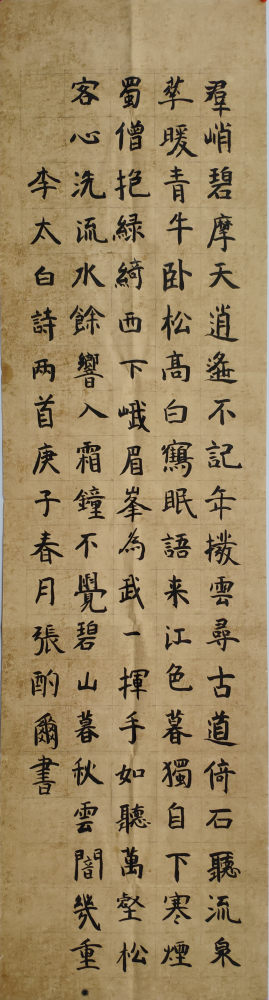 羣峭碧摩天逍遙不記年撥雲尋古道倚石聽流泉
花暖青牛卧松高白鶴眠語来江色暮獨自下寒煙
蜀僧抱綠綺西下峨眉峯為我一揮手如聽萬壑松
客心洗流水餘響入霜鐘不覺碧山暮秋雲闇幾重
李太白詩兩首庚子春月張酌爾書